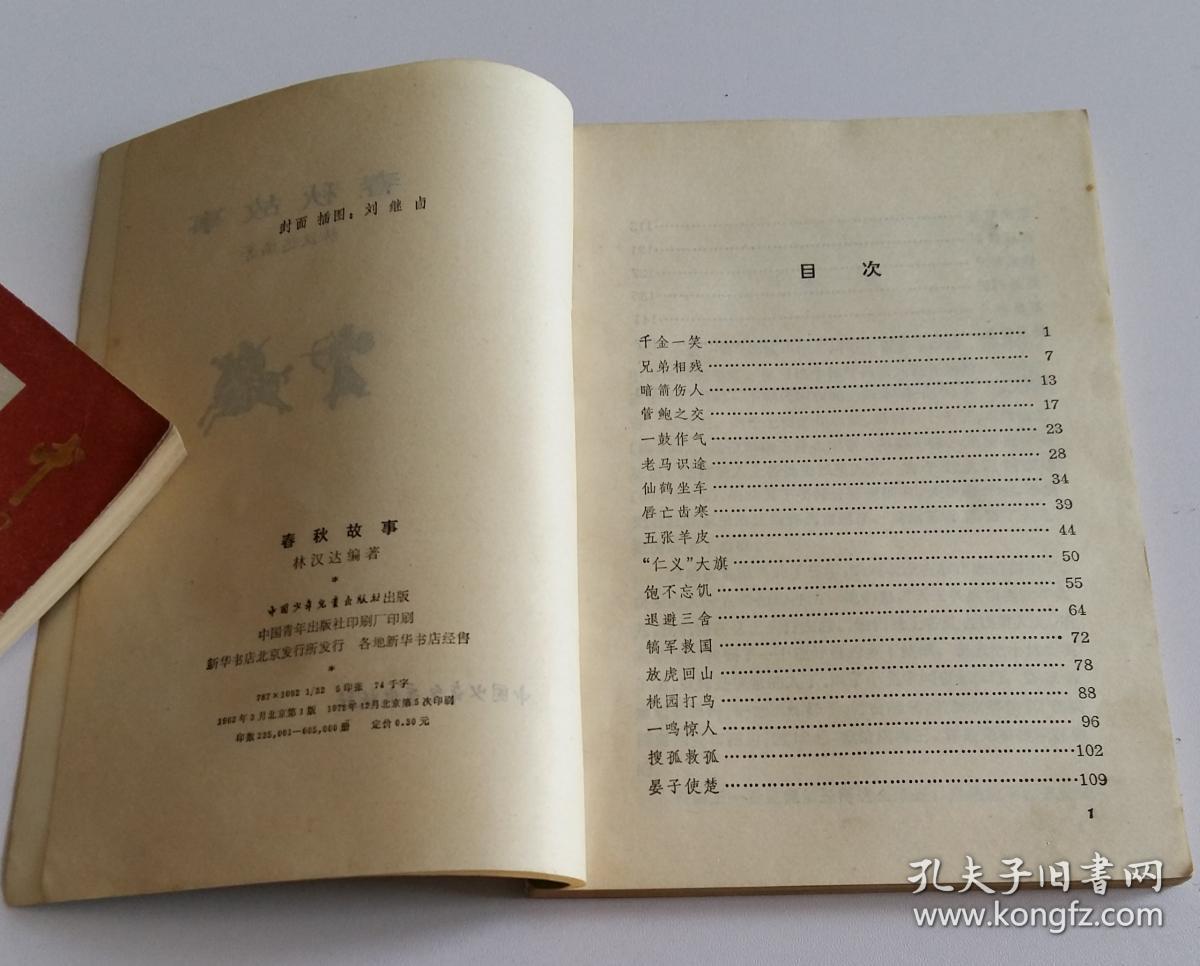 封面 插图：刘 继 卣
春 秋 故 事
林汉达编著
*
中国少年儿童出版社出版
中国青年出版社印刷厂印刷
新华书店北京发行所发行 各地新华书店经售
*
787×1092 1/32 5印张 74千字
1962年3月北京第1版 1978年12月北京第5次印刷
印数 225,001—605,000册 定价0.30元
目 次
千金一笑 1
兄弟相残 7
暗箭伤人 13
管鲍之交 17
一鼓作气 23
老马识途 28
仙鹤坐车 34
唇亡齿寒 39
五张羊皮 44
“仁义”大旗 50
饱不忘饥 55
退避三舍 64
犒军救国 72
放虎回山 78
桃园打鸟 88
一鸣惊人 96
搜孤救孤 102
晏子使楚 109
1
孔夫子旧书网
www.kongfz.com